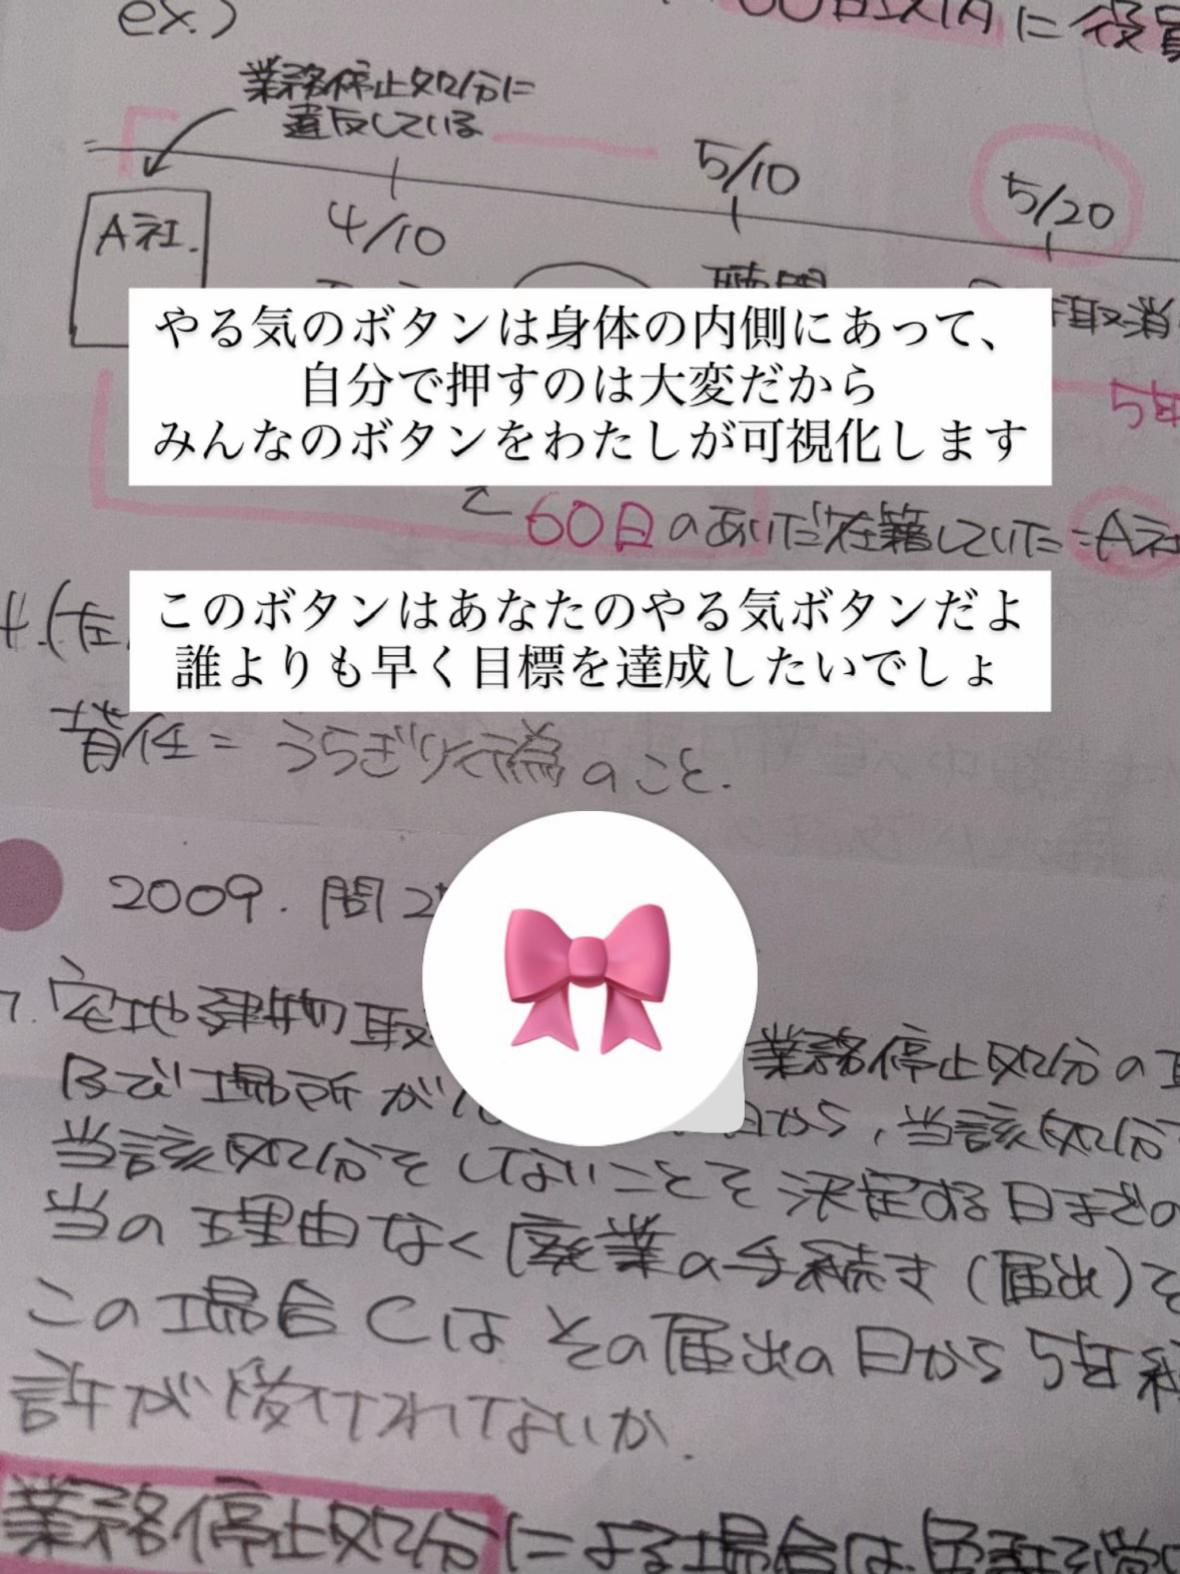 ex.)
60日以内に役員
業務停止処分に
違反している
A社.
4/10
5/10
5/20
聴聞
取消
やる気のボタンは身体の内側にあって、
自分で押すのは大変だから
みんなのボタンをわたしが可視化します
5年
60日のあいだ在籍していた=A社
このボタンはあなたのやる気ボタンだよ
誰よりも早く目標を達成したいでしょ
背任=うらぎり行為のこと.
2009.問2
7.宅地建物取
業務停止処分の
及び場所が
日から,当該処分
当該処分をしないことを決定する日までの
当の理由なく廃業の手続き(届出)を
この場合Cはその届出の日から5年
許が受けれないか.
業務停止処分による場合は免許